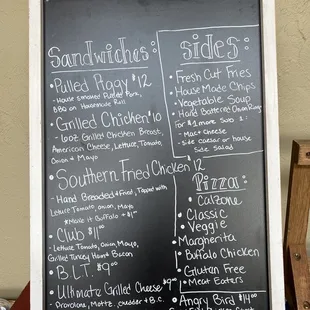 Sandwiches:
• Pulled Piggy $12
- House smoked Pulled Pork,
BBQ on Housemade Roll
• Grilled Chicken $10
- 6oz Grilled Chicken Breast,
American Cheese, Lettuce, Tomato,
Onion + Mayo
• Southern Fried Chicken 12
- Hand Breaded + Fried, Topped with
Lettuce Tomato, Onion, Mayo
*Make it Buffalo + $1
• Club $11.00
- Lettuce Tomato, Onion, Mayo,
Grilled Turkey Ham + Bacon
• B.L.T. $9.00
• Ultimate Grilled Cheese $9.00
- Provolone, Motz, chedder + B.C.
Sides:
• Fresh Cut Fries
• House Made Chips
• Vegetable Soup
• Hand Battered Onion Rings
For $1 more Solo:
- Mac + Cheese
- Side Caesar or House
Side Salad
Pizza:
• Calzone
• Classic
• Veggie
• Margherita
• Buffalo Chicken
• Gluten Free
• Meat Eaters
• Angry Bird $14.00